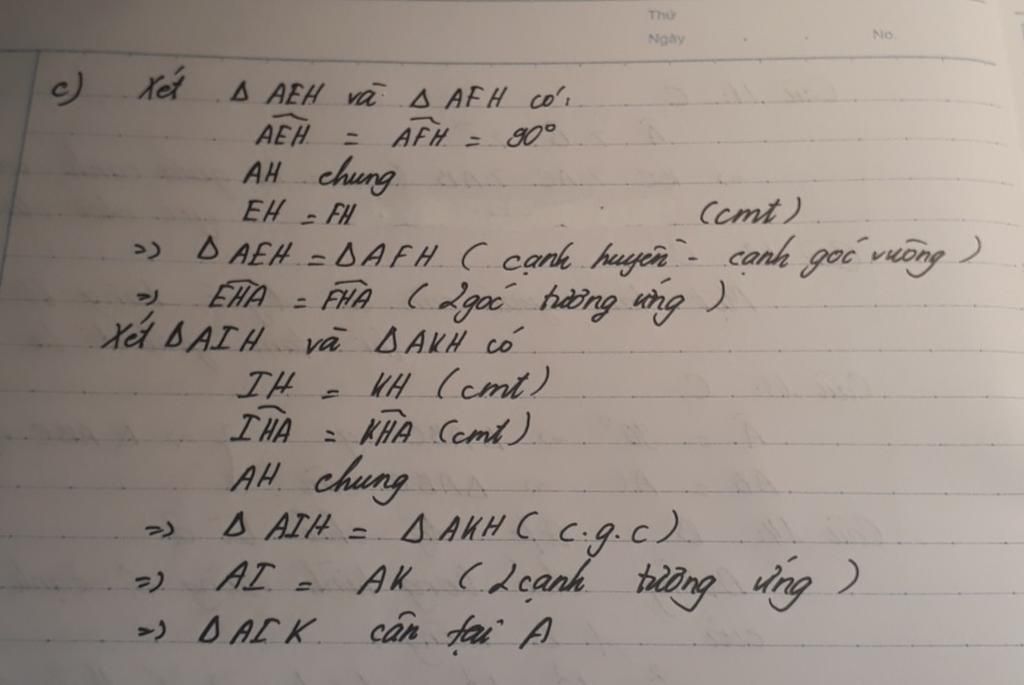 Thứ
Ngày . . No.
c) Xét Δ AEH và Δ AFH có:
\widehat{AEH} = \widehat{AFH} = 90°
AH chung
EH = FH (cmt)
=> Δ AEH = Δ AFH ( cạnh huyền - cạnh góc vuông )
=> \widehat{EHA} = \widehat{FHA} ( 2 góc tương ứng )
Xét Δ AIH và Δ AKH có
IH = KH (cmt)
\widehat{IHA} = \widehat{KHA} (cmt)
AH chung
=> Δ AIH = Δ AKH ( c.g.c )
=> AI = AK ( 2 cạnh tương ứng )
=> Δ AIK cân tại A